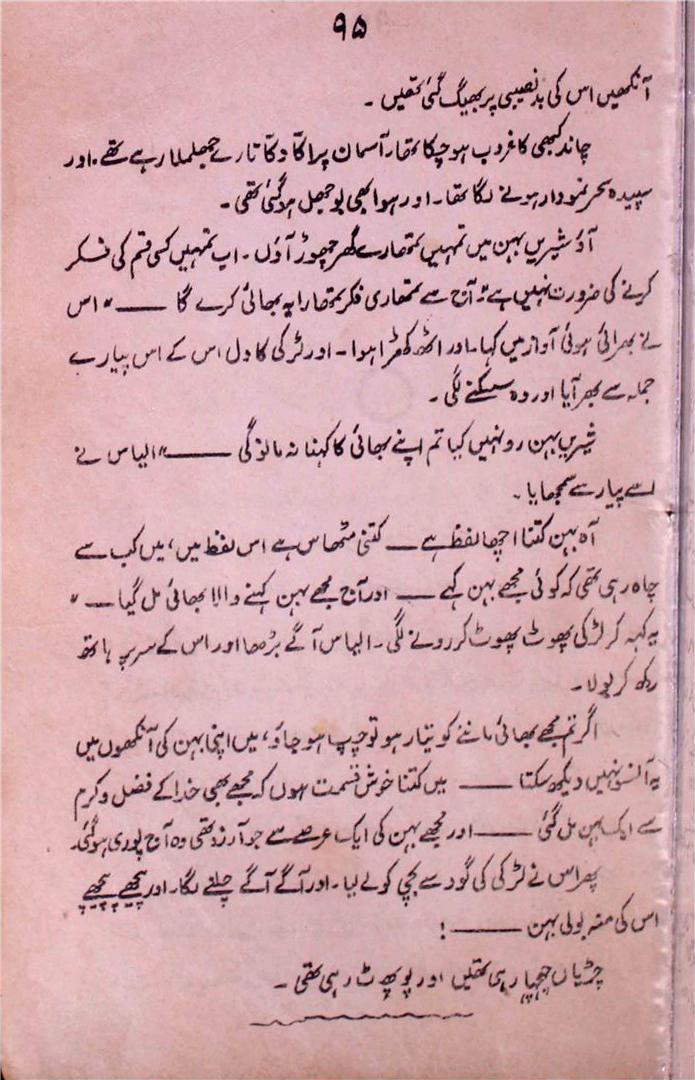 ۹۵
آنکھیں اس کی بدنصیبی پر بھیگ گئی تھیں ۔
چاند کبھی کا غروب ہو چکا تھا، آسمان پر اکا دکا تارے جھلملا رہے تھے۔ اور
سپیدہ سحر نمودار ہونے لگا تھا۔ اور ہوا بھی بوجھل ہو گئی تھی ۔
آؤ شیریں بہن میں تمہیں تمھارے گھر چھوڑ آؤں ۔ اب تمہیں کسی قسم کی فکر
کرنے کی ضرورت نہیں ہے، آج سے تمھاری فکر تمھارا یہ بھائی کرے گا ــــــ" اس
نے بھرائی ہوئی آواز میں کہا۔ اور اٹھ کھڑا ہوا ۔ اور لڑکی کا دل اس کے اس پیارے
جملہ سے بھر آیا اور وہ سسکنے لگی ۔
شیریں بہن رو نہیں کیا تم اپنے بھائی کا کہنا نہ مانو گی ــــــ" الیاس نے
اسے پیار سے سمجھایا ۔
آہ بہن کتنا اچھا لفظ ہے ــــ کتنی مٹھاس ہے اس لفظ میں، میں کب سے
چاہ رہی تھی کہ کوئی مجھے بہن کہے ــــ اور آج مجھے بہن کہنے والا بھائی مل گیا ــــ"
یہ کہہ کر لڑکی پھوٹ پھوٹ کر رونے لگی ۔ الیاس آگے بڑھا اور اس کے سر پر ہاتھ
رکھ کر بولا ۔
اگر تم مجھے بھائی ماننے کو تیار ہو تو چپ ہو جاؤ، میں اپنی بہن کی آنکھوں میں
یہ آنسو نہیں دیکھ سکتا ــــــ میں کتنا خوش قسمت ہوں کہ مجھے بھی خدا کے فضل و کرم
سے ایک بہن مل گئی ــــــ اور مجھے بہن کی ایک عرصے سے جو آرزو تھی وہ آج پوری ہو گئی۔
پھر اس نے لڑکی کی گود سے بچی کو لے لیا ۔ اور آگے آگے چلنے لگا۔ اور پیچھے پیچھے
اس کی منہ بولی بہن ــــــ !
چڑیاں چہچہا رہی تھیں اور پو پھٹ رہی تھی ۔